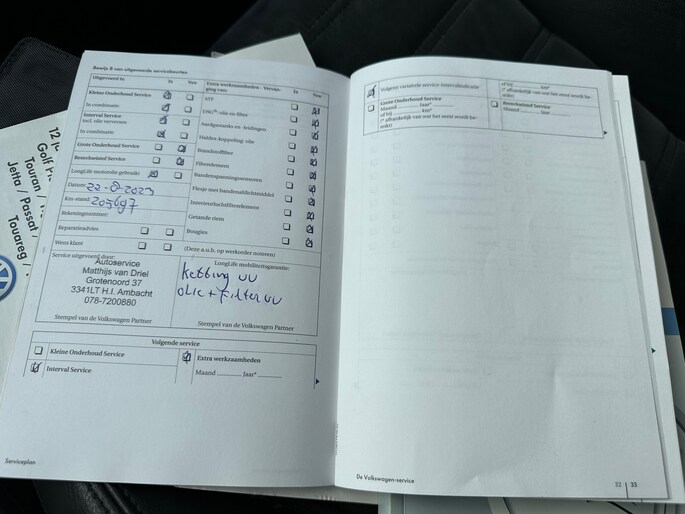 Bewijs 8 van uitgevoerde servicebeurten
Uitgevoerd is: Ja Nee
Kleine Onderhoud Service
In combinatie:
Interval Service
incl. olie verversen
In combinatie:
Grote Onderhoud Service
Bestelwissel Service
LongLife motorolie gebruikt:
Datum: 22-8-2023
Km-stand: 205697
Rekeningnummer:
Reparatieadvies
Wens klant
Extra werkzaamheden - Vervanging van: Ja Nee
ATF
DSG®-olie en filter
Aardgastanks en -leidingen
Haldex-koppeling: olie
Brandstoffilter
Filterelement
Bandenspanningssensoren
Flesje met bandenafdichtmiddel
Interieurluchtfilterelement
Getande riem
Bougies
(Deze a.u.b. op werkorder noteren)
Service uitgevoerd door:
Autoservice
Matthijs van Driel
Grotenoord 37
3341LT H.I. Ambacht
078-7200880
Stempel van de Volkswagen Partner
LongLife mobiliteitsgarantie:
Ketting vv
olie + Filter vv
Stempel van de Volkswagen Partner
Volgende service
Kleine Onderhoud Service
Interval Service
Extra werkzaamheden
Maand Jaar*
Serviceplan
Volgens variabele service-intervalindicatie
Grote Onderhoud Service
Maand Jaar*
of bij km*
(* afhankelijk van wat het eerst wordt bereikt)
of bij km*
(* afhankelijk van wat het eerst wordt bereikt)
Maand Jaar*
De Volkswagen-service
32 | 33
Touran /
Jetta / Passat
Touareg /